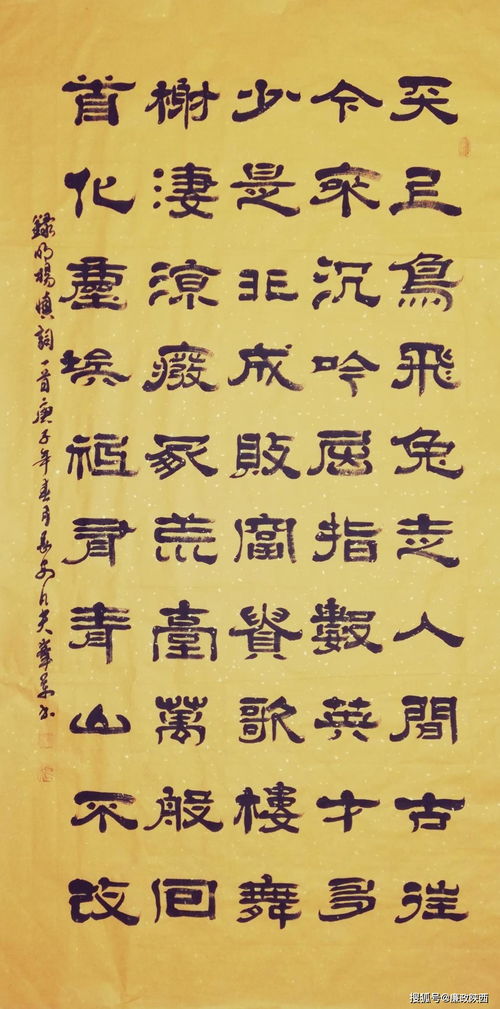 天上鳥飛兔走人間古往
今來沉吟屈指數英才多
少是非成敗富貴歌樓舞
榭淒涼廢冢荒臺萬般回
首化塵埃祗有青山不改
錄明楊慎詞一首庚子年春月長安
搜狐号@廉政陕西